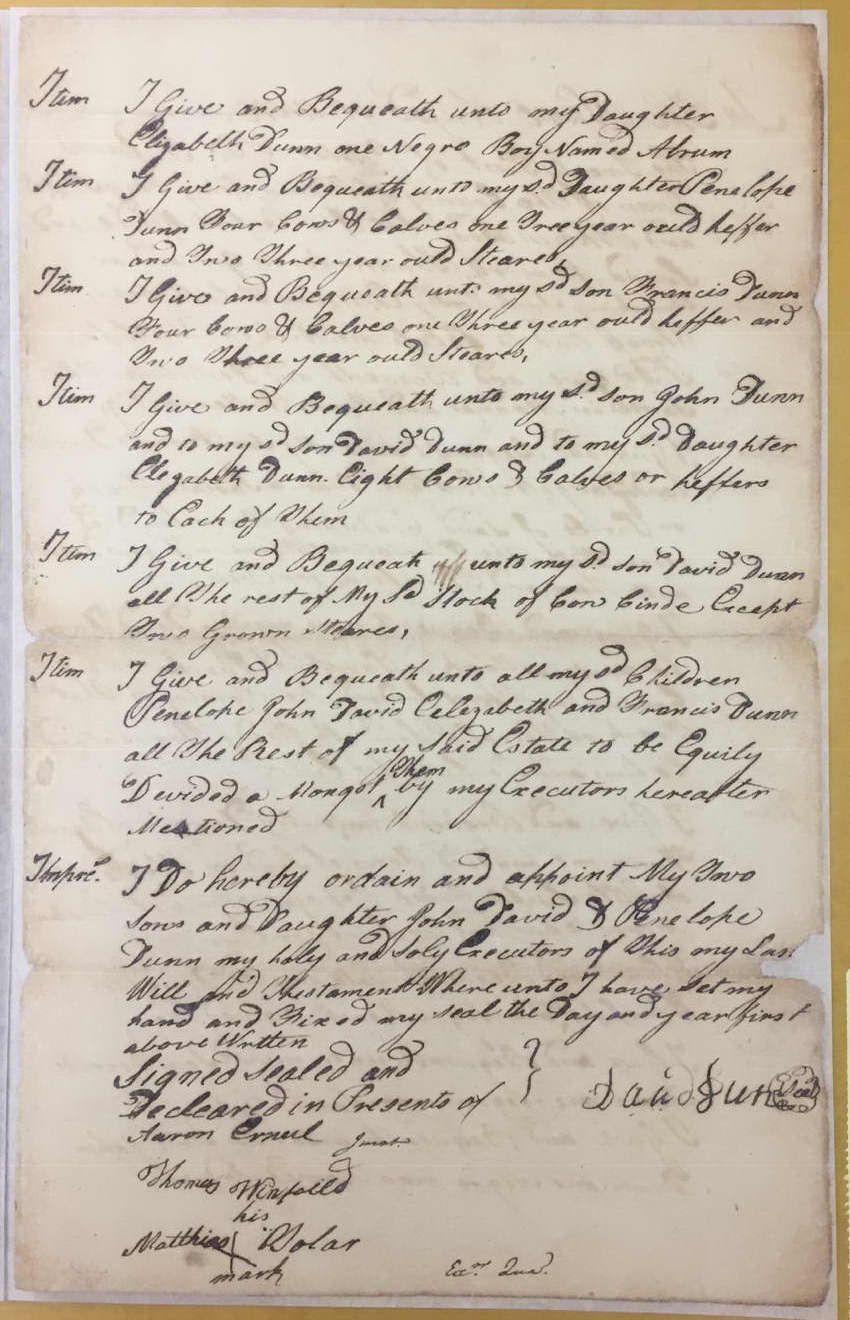 Itim I Give and Bequeath unto my Daughter
Elizabeth Dunn one Negro Boy Named Abrum
Itim I Give and Bequeath unto my sd Daughter Penelope
Dunn Four Cows & Calves one Treeyear ould heffer
and Two Three year ould Steares,
Itim I Give and Bequeath unto my sd son Francis Dunn
Four Cows & Calves one Three year ould heffer and
Two Three year ould Steares,
Itim I Give and Bequeath unto my sd son John Dunn
and to my sd son David Dunn and to my sd Daughter
Elezabeth Dunn Eight Cows & Calves or heffers
to Each of Them
Itim I Give and Bequeath unto my sd son David Dunn
all The rest of My Sd Stock of Cow Cinde Except
Two Grown Steares,
Itim I Give and Bequeath unto all my sd Children
Penelope John David Elezabeth and Francis Dunn
all The Rest of my Said Estate to be Equily
Them
Devided a Mongst ^ by my Executors hereafter
Mentioned
I Do hereby ordain and appoint My Two
Sons and Daughter John David & Penelope
Dunn my holy and Soly Executors of This my Las
Will and Thestament Where unto I have set my
hand and Fixed my seal the Day and year first
above Wrtten
Signed Sealed and
Decleared in Presents of
David Dunn Seal
Aaron Ernul Jurat
Thomas Winfeild
his
Matthias Tolar
mark